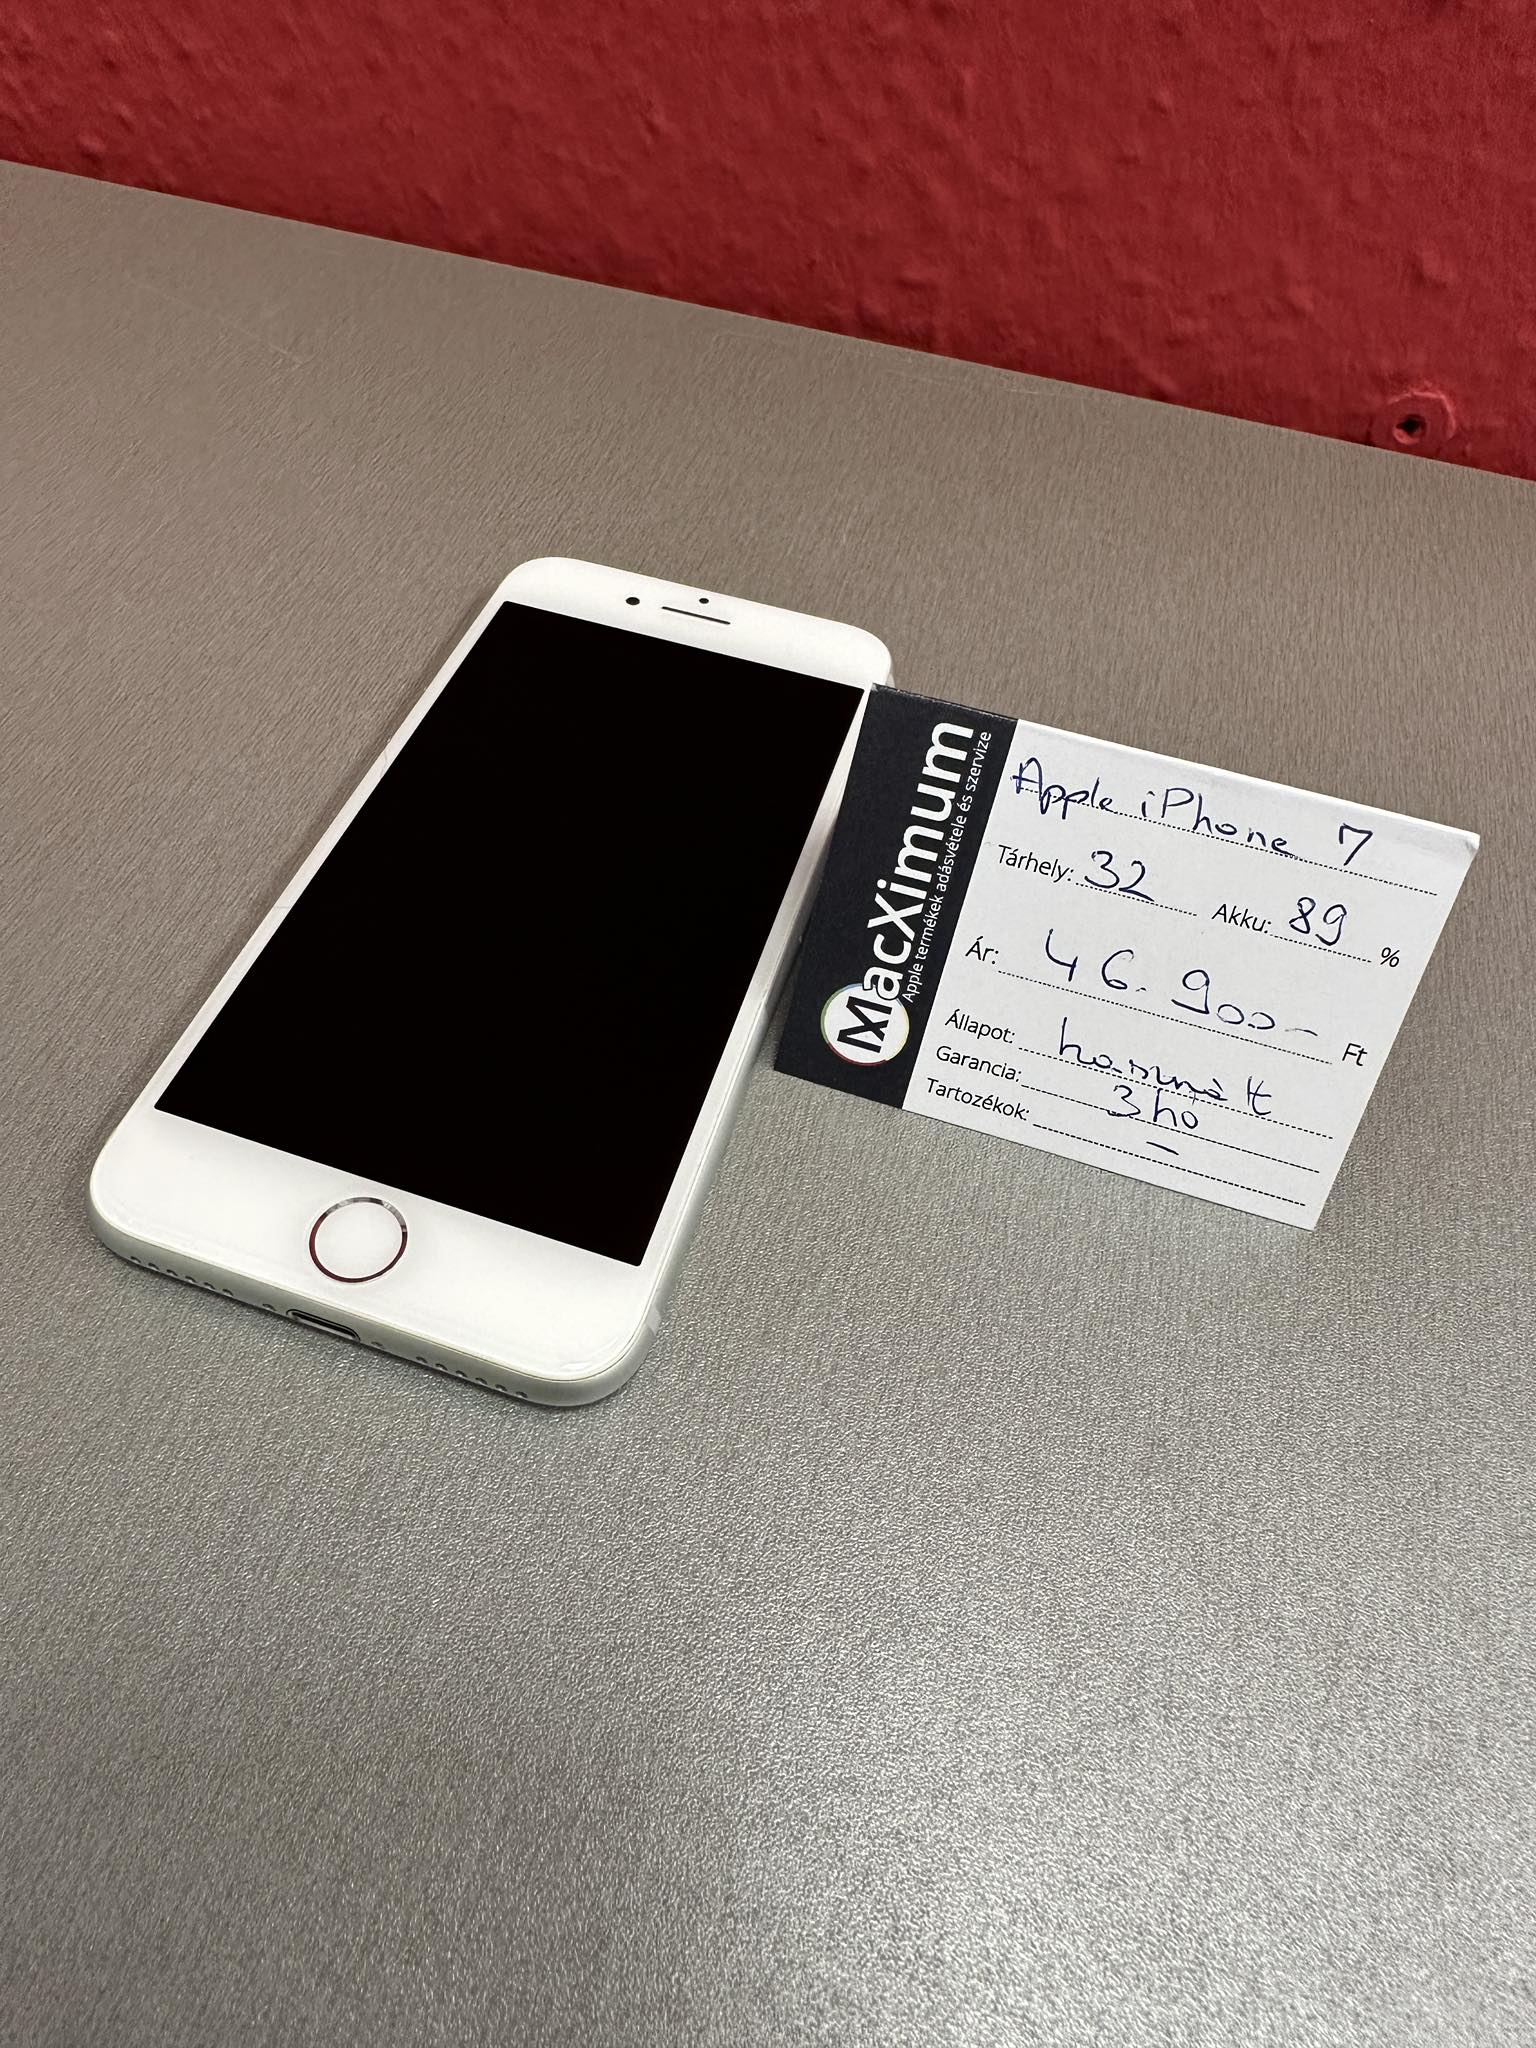 MacXimum
Apple termékek adásvétele és szervize
Apple iPhone 7
Tárhely: 32 Akku: 89 %
Ár: 46.900- Ft
Állapot: használt
Garancia: 3 hó
Tartozékok: —